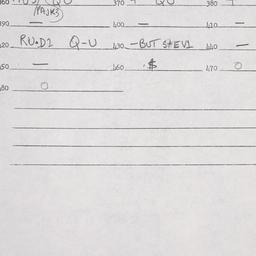 360 370 QU 380
(MAJKS)
390 — 400 — 410 —
420 RU.D1 Q-U 430 —BUT SHEV1 440 —
450 — 460 .$ 470 O
480 O